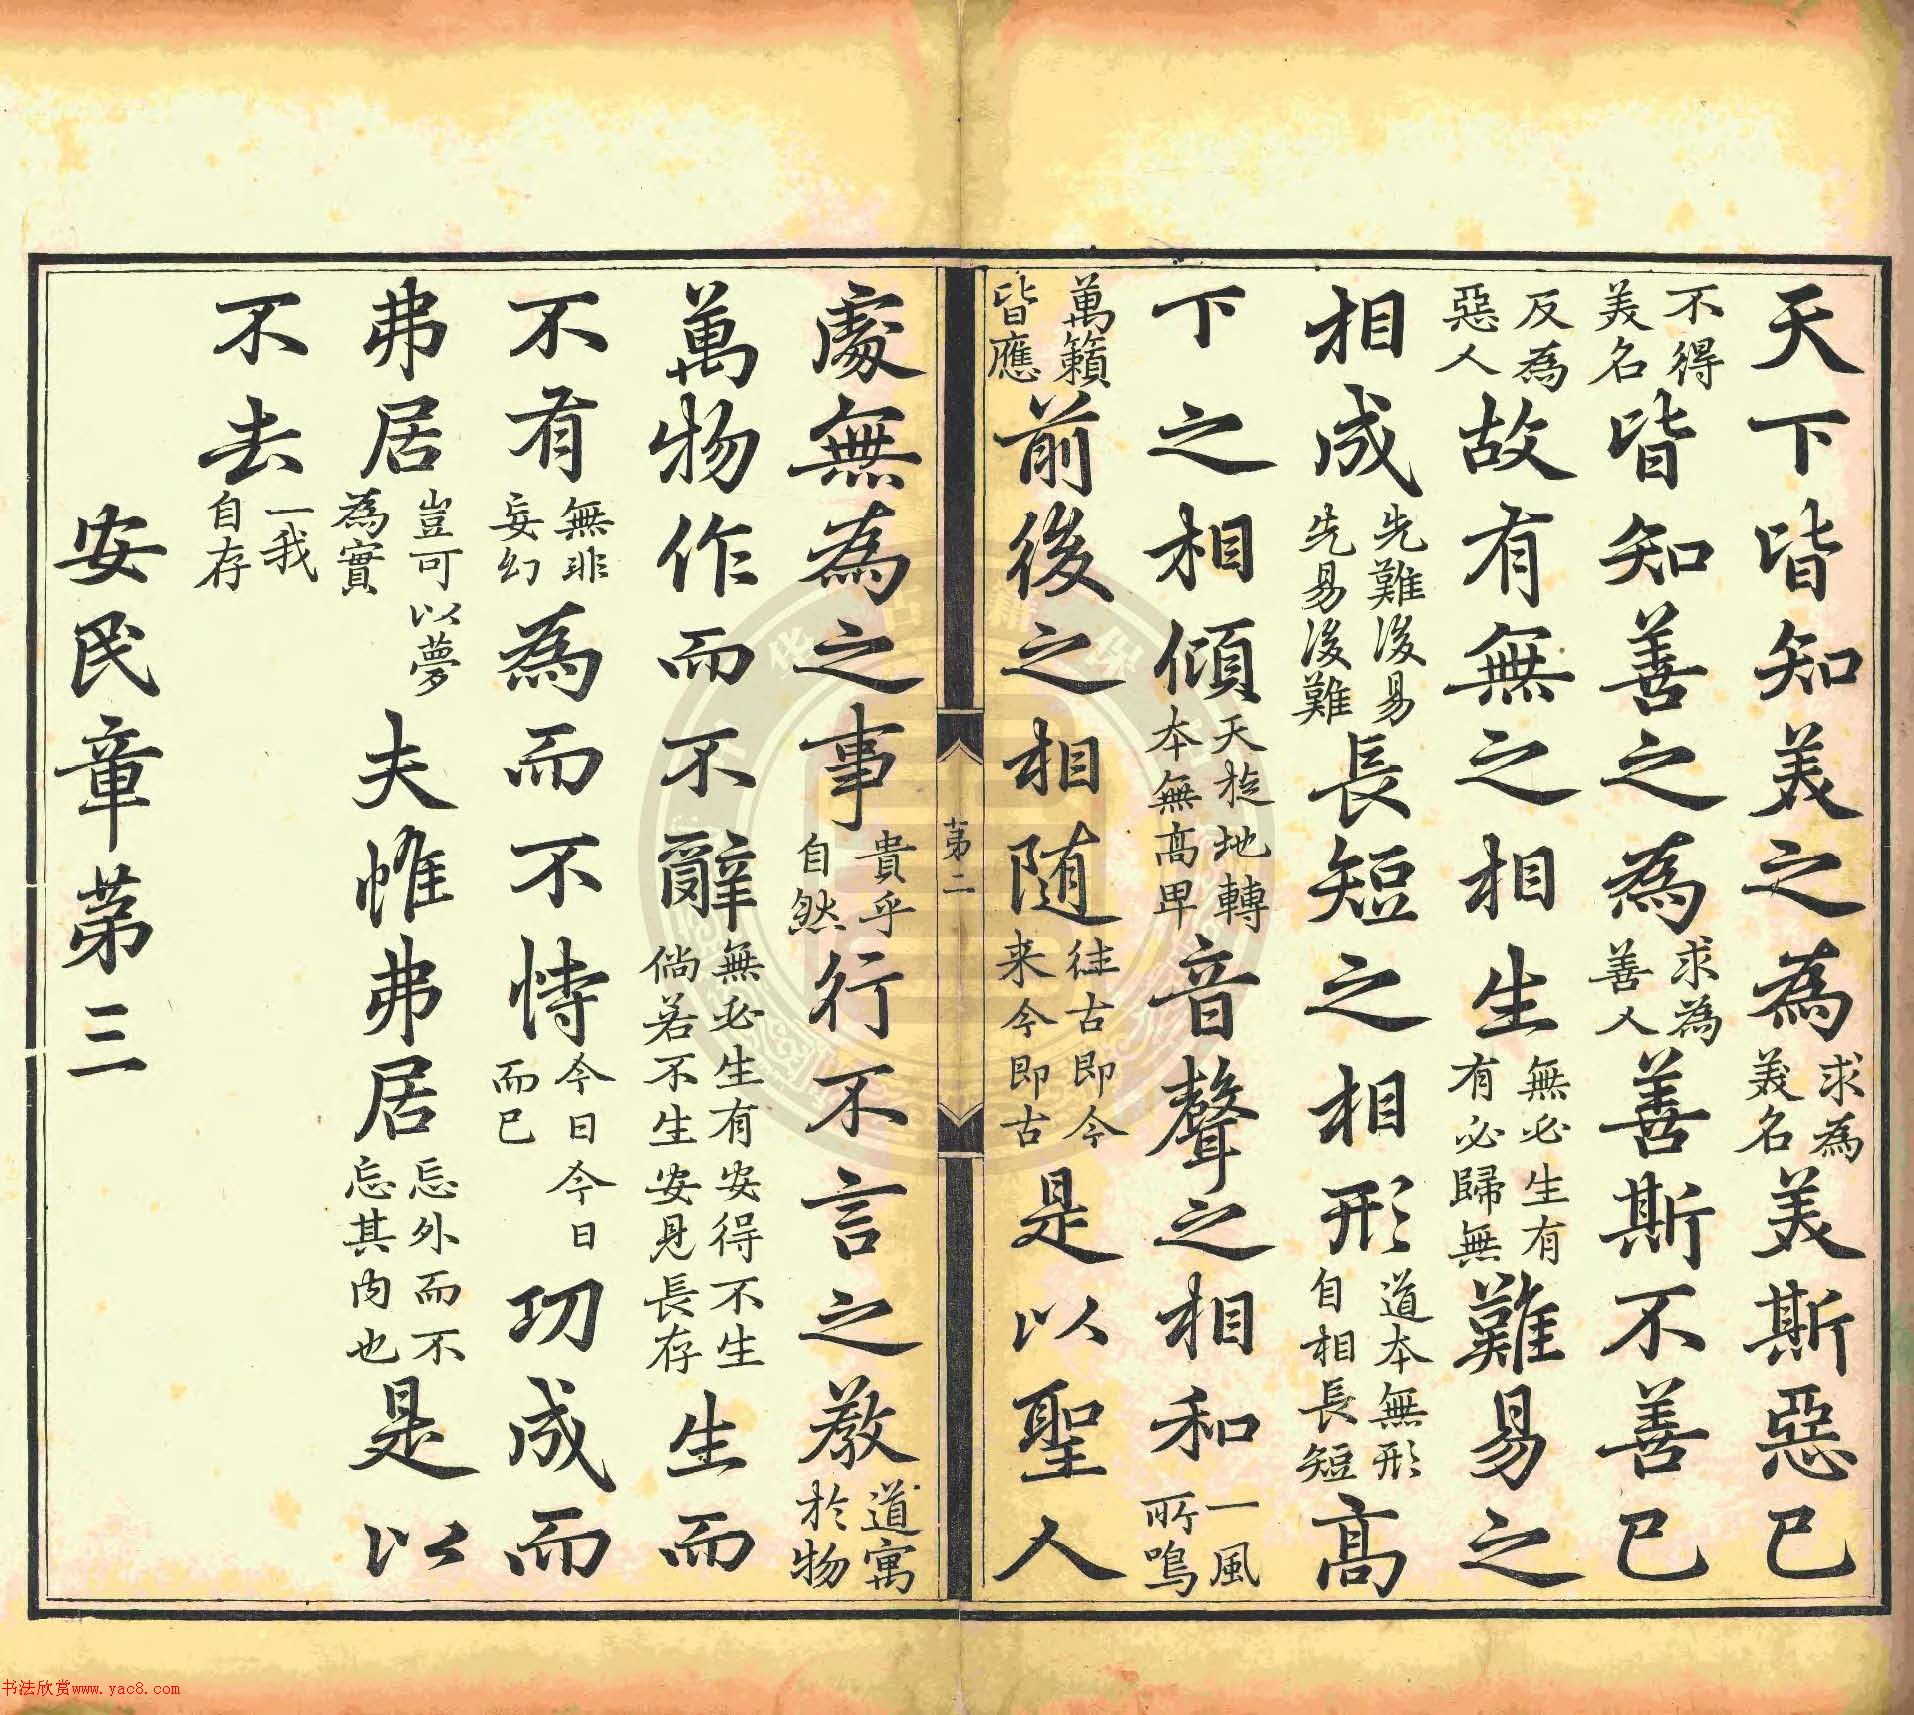 天下皆知美之為求為美名美斯惡已
不得美名皆知善之為求為善人善斯不善已
反為惡人故有無之相生無必生有有必歸無難易之
相成先難後易先易後難長短之相形道本無形自相長短高
下之相傾天旋地轉本無高卑音聲之相和一風所鳴
萬籟皆應前後之相随往古即今来今即古是以聖人
苐二
處無為之事貴乎自然行不言之教道寓於物
萬物作而不辭無必生有安得不生倘若不生安見長存生而
不有無非妄幻為而不恃今日今日而已功成而
弗居豈可以夢為實夫惟弗居忘外而不忘其内也是以
不去一我自存
安民章苐三
书法欣赏www.yac8.com